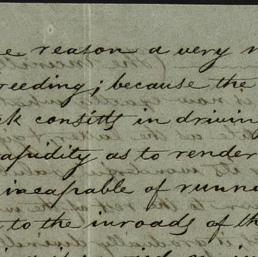 reason a very
reeding; because the
consists in drivin
apidity as to render
incapable of runn
to the inroads of th